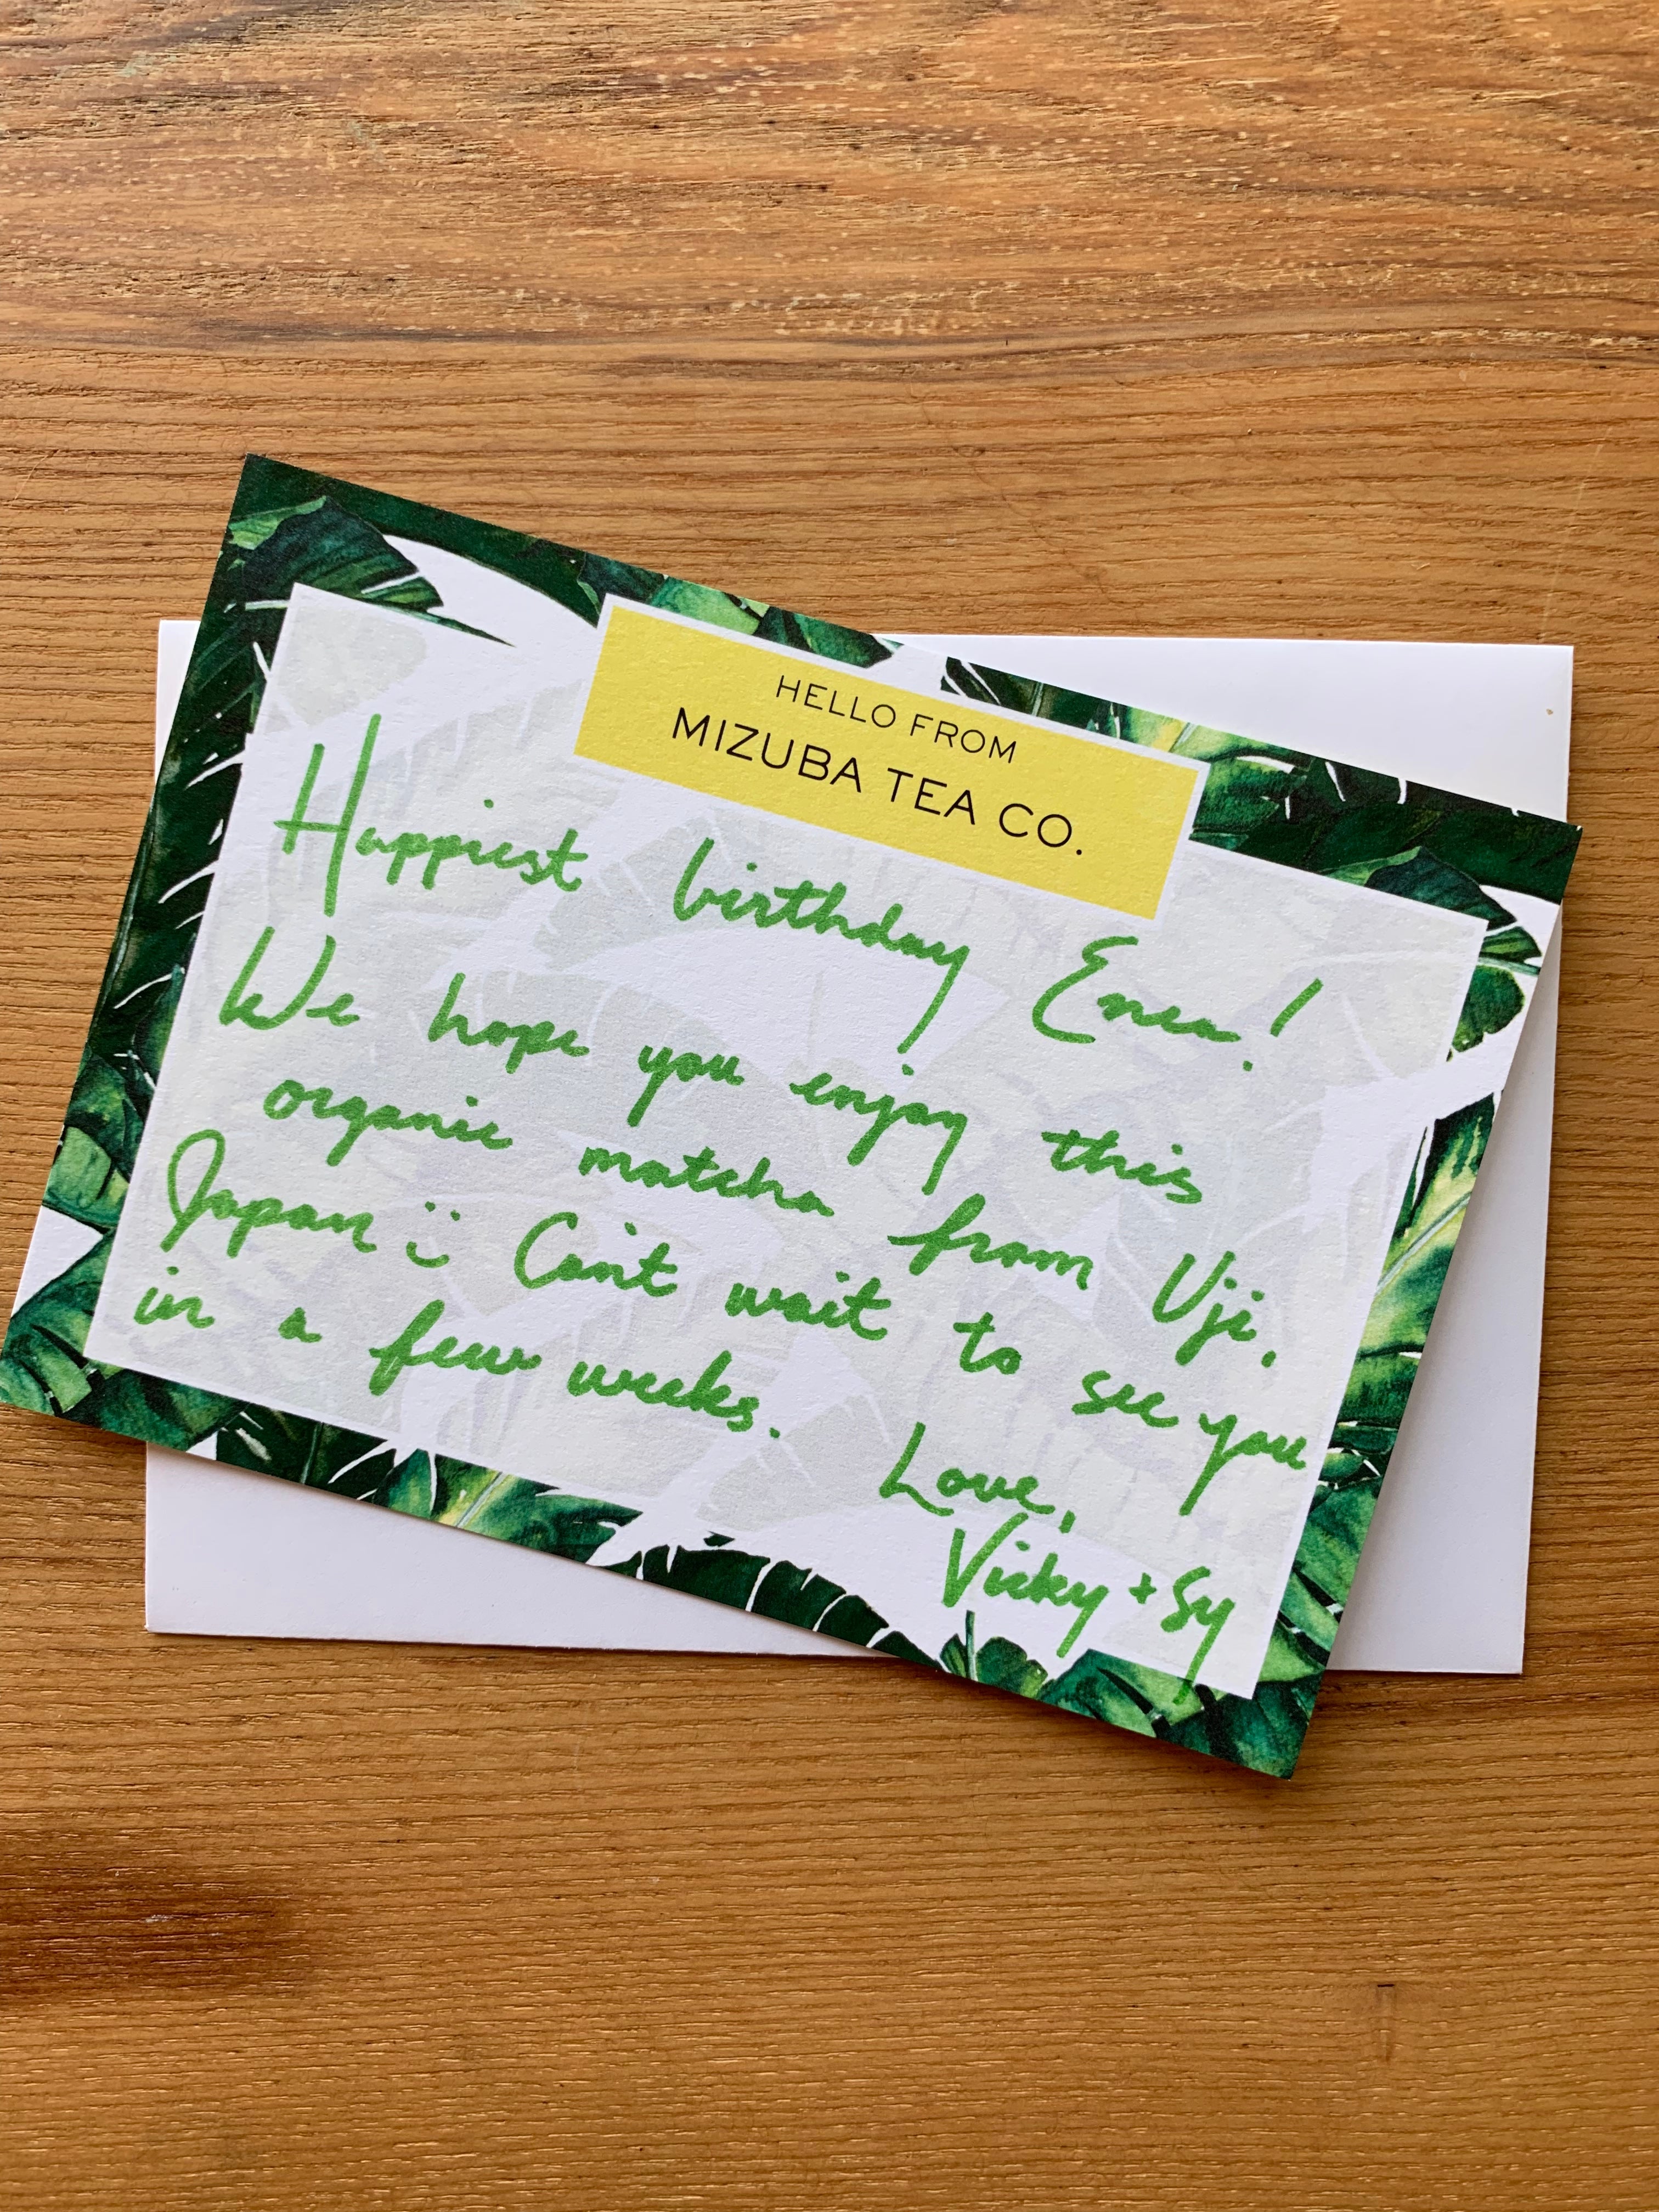 HELLO FROM
MIZUBA TEA CO.
Happiest birthday Enea!
We hope you enjoy this
organic matcha from Uji,
Japan :) Can't wait to see you
in a few weeks.
Love,
Vicky + Sy